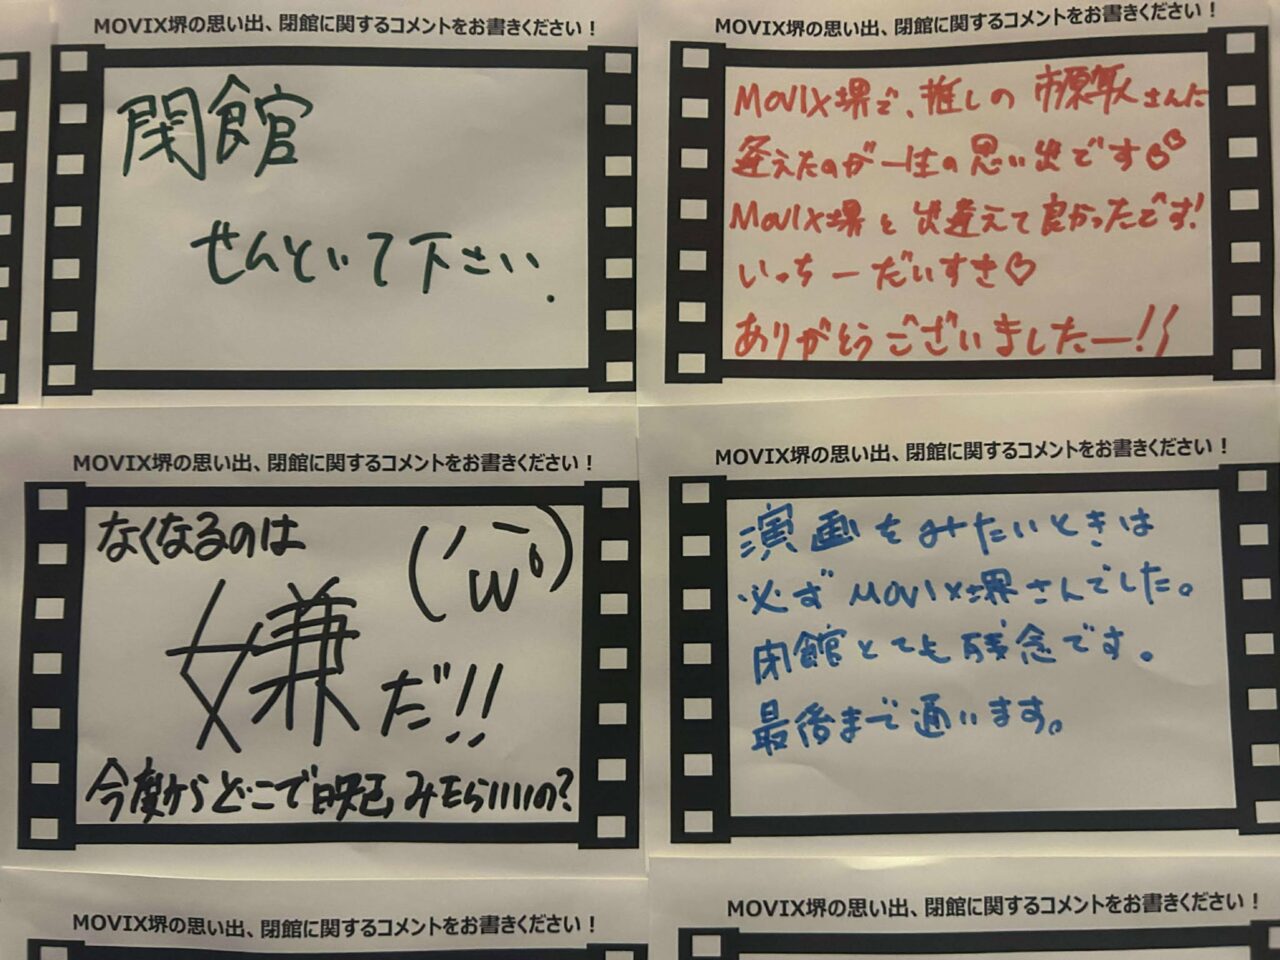 MOVIX堺の思い出、閉館に関するコメントをお書きください！
閉館
せんといて下さい.
MOVIX堺の思い出、閉館に関するコメントをお書きください！
MOVIX堺で、推しの 市原隼人さんに
逢えたのが一生の思い出です♡♡
MOVIX堺と出逢えて良かったです!
いっちーだいすき♡
ありがとうございましたー!!
MOVIX堺の思い出、閉館に関するコメントをお書きください！
なくなるのは
嫌だ!!
今度からどこで映画みたらいいの?
MOVIX堺の思い出、閉館に関するコメントをお書きください！
演画をみたいときは
必ずMOVIX堺さんでした。
閉館とても残念です。
最後まで通います。
MOVIX堺の思い出、閉館に関するコメントをお書きください！
MOVIX堺の思い出、閉館に関するコメントをお書きください！